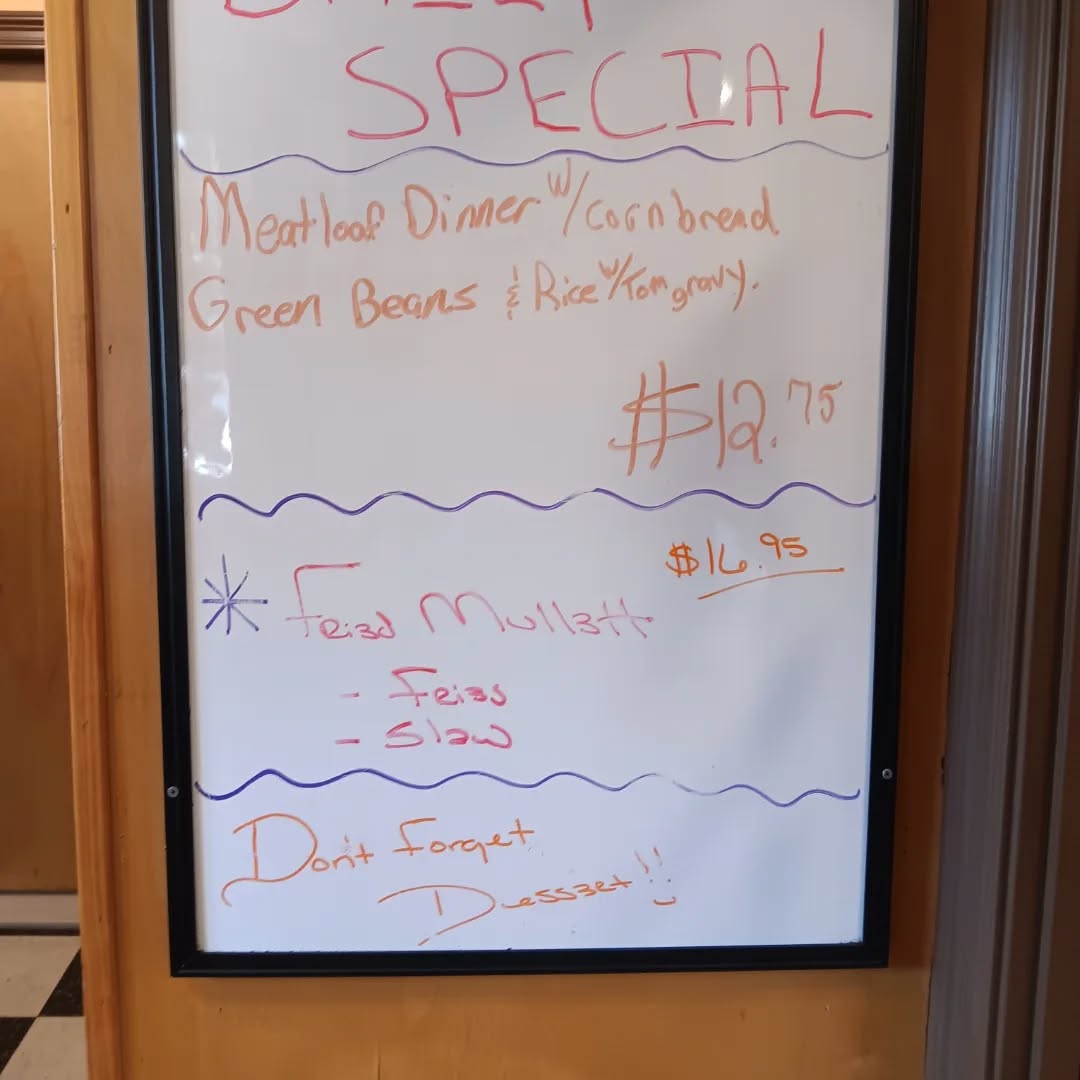 DAILY
SPECIAL
Meatloaf Dinner w/cornbread
Green Beans & Rice w/Tom gravy.
$12.75
$16.95
* Fried Mullett
- Fries
- Slaw
Don't Forget
Dessert!!